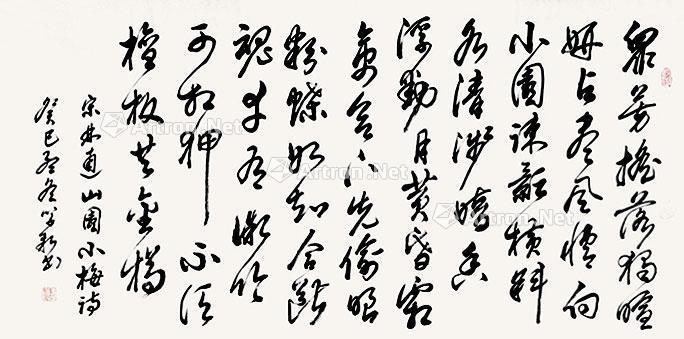 众芳摇落独暄
妍占尽风情向
小园疏影横斜
水清浅暗香
浮动月黄昏霜
禽欲下先偷眼
粉蝶如知合断
魂幸有微吟
可相狎不须
檀板共金樽
宋林逋山园小梅诗
癸巳
Artron.Net